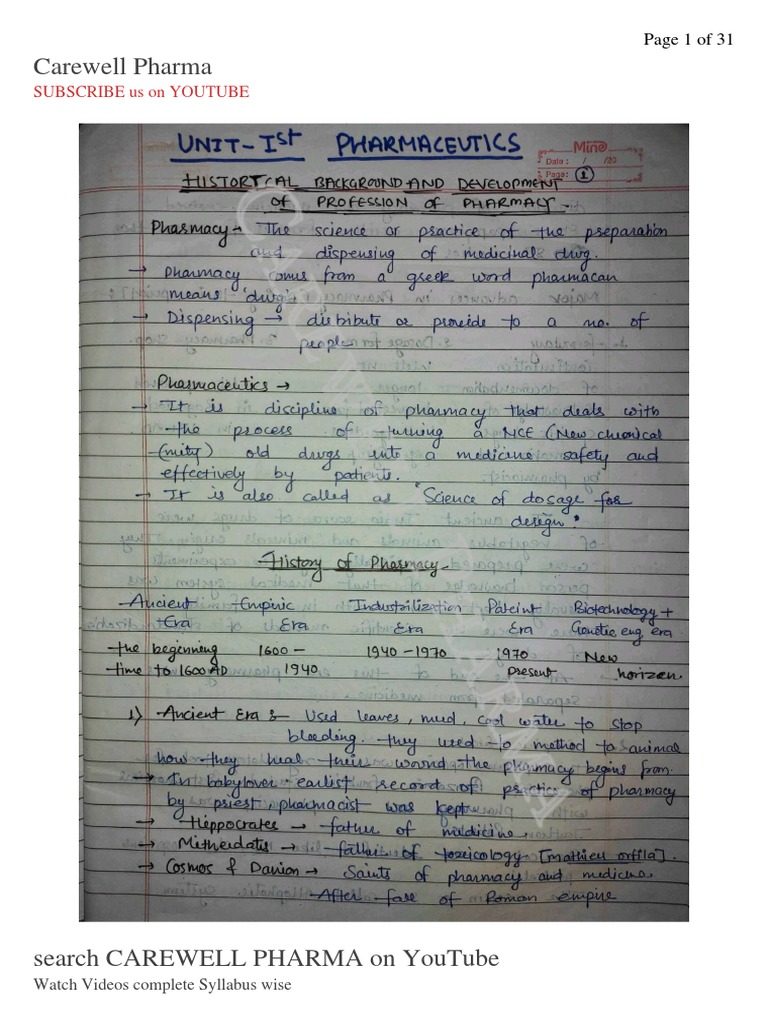 Page 1 of 31
Carewell Pharma
SUBSCRIBE us on YOUTUBE
UNIT-Ist PHARMACEUTICS
Mino
Date: / /20
Page: 1
HISTORICAL BACKGROUND AND DEVELOPMENT
OF PROFESSION OF PHARMACY -
Pharmacy - The science or practice of the preparation
and dispensing of medicinal drug.
→ Pharmacy comes from a greek word pharmacan
means 'drug'
→ Dispensing → distribute or provide to a no. of
people
Pharmaceutics →
→ It is discipline of pharmacy that deals with
the process of turning a NCE (New chemical
old drugs into a medicine safety and
effectively by patients.
→ It is also called as "Science of dosage for
design"
History of Pharmacy -
Ancient Empiric Industrilization Pateint Biotechnology +
Era Era Era Era Genetic eng era
the beginning 1600 - 1940 - 1970 1970 New
time to 1600 AD 1940 present horizon.
1) Ancient Era :- Used leaves, mud, cool water to stop
bleeding. they used to method to animal
how they heal their wound the pharmacy begins from.
→ In babylover earlist record of practice of pharmacy
by priest, pharmacist was kept
→ Hippocrates → father of maldicine.
→ Mitheridatis → father of toxicology [mathieu orffla].
→ Cosmos & Danion → Saints of pharmacy and medicine.
After fare of Roman empire
CAREWELL PHARMA
search CAREWELL PHARMA on YouTube
Watch Videos complete Syllabus wise